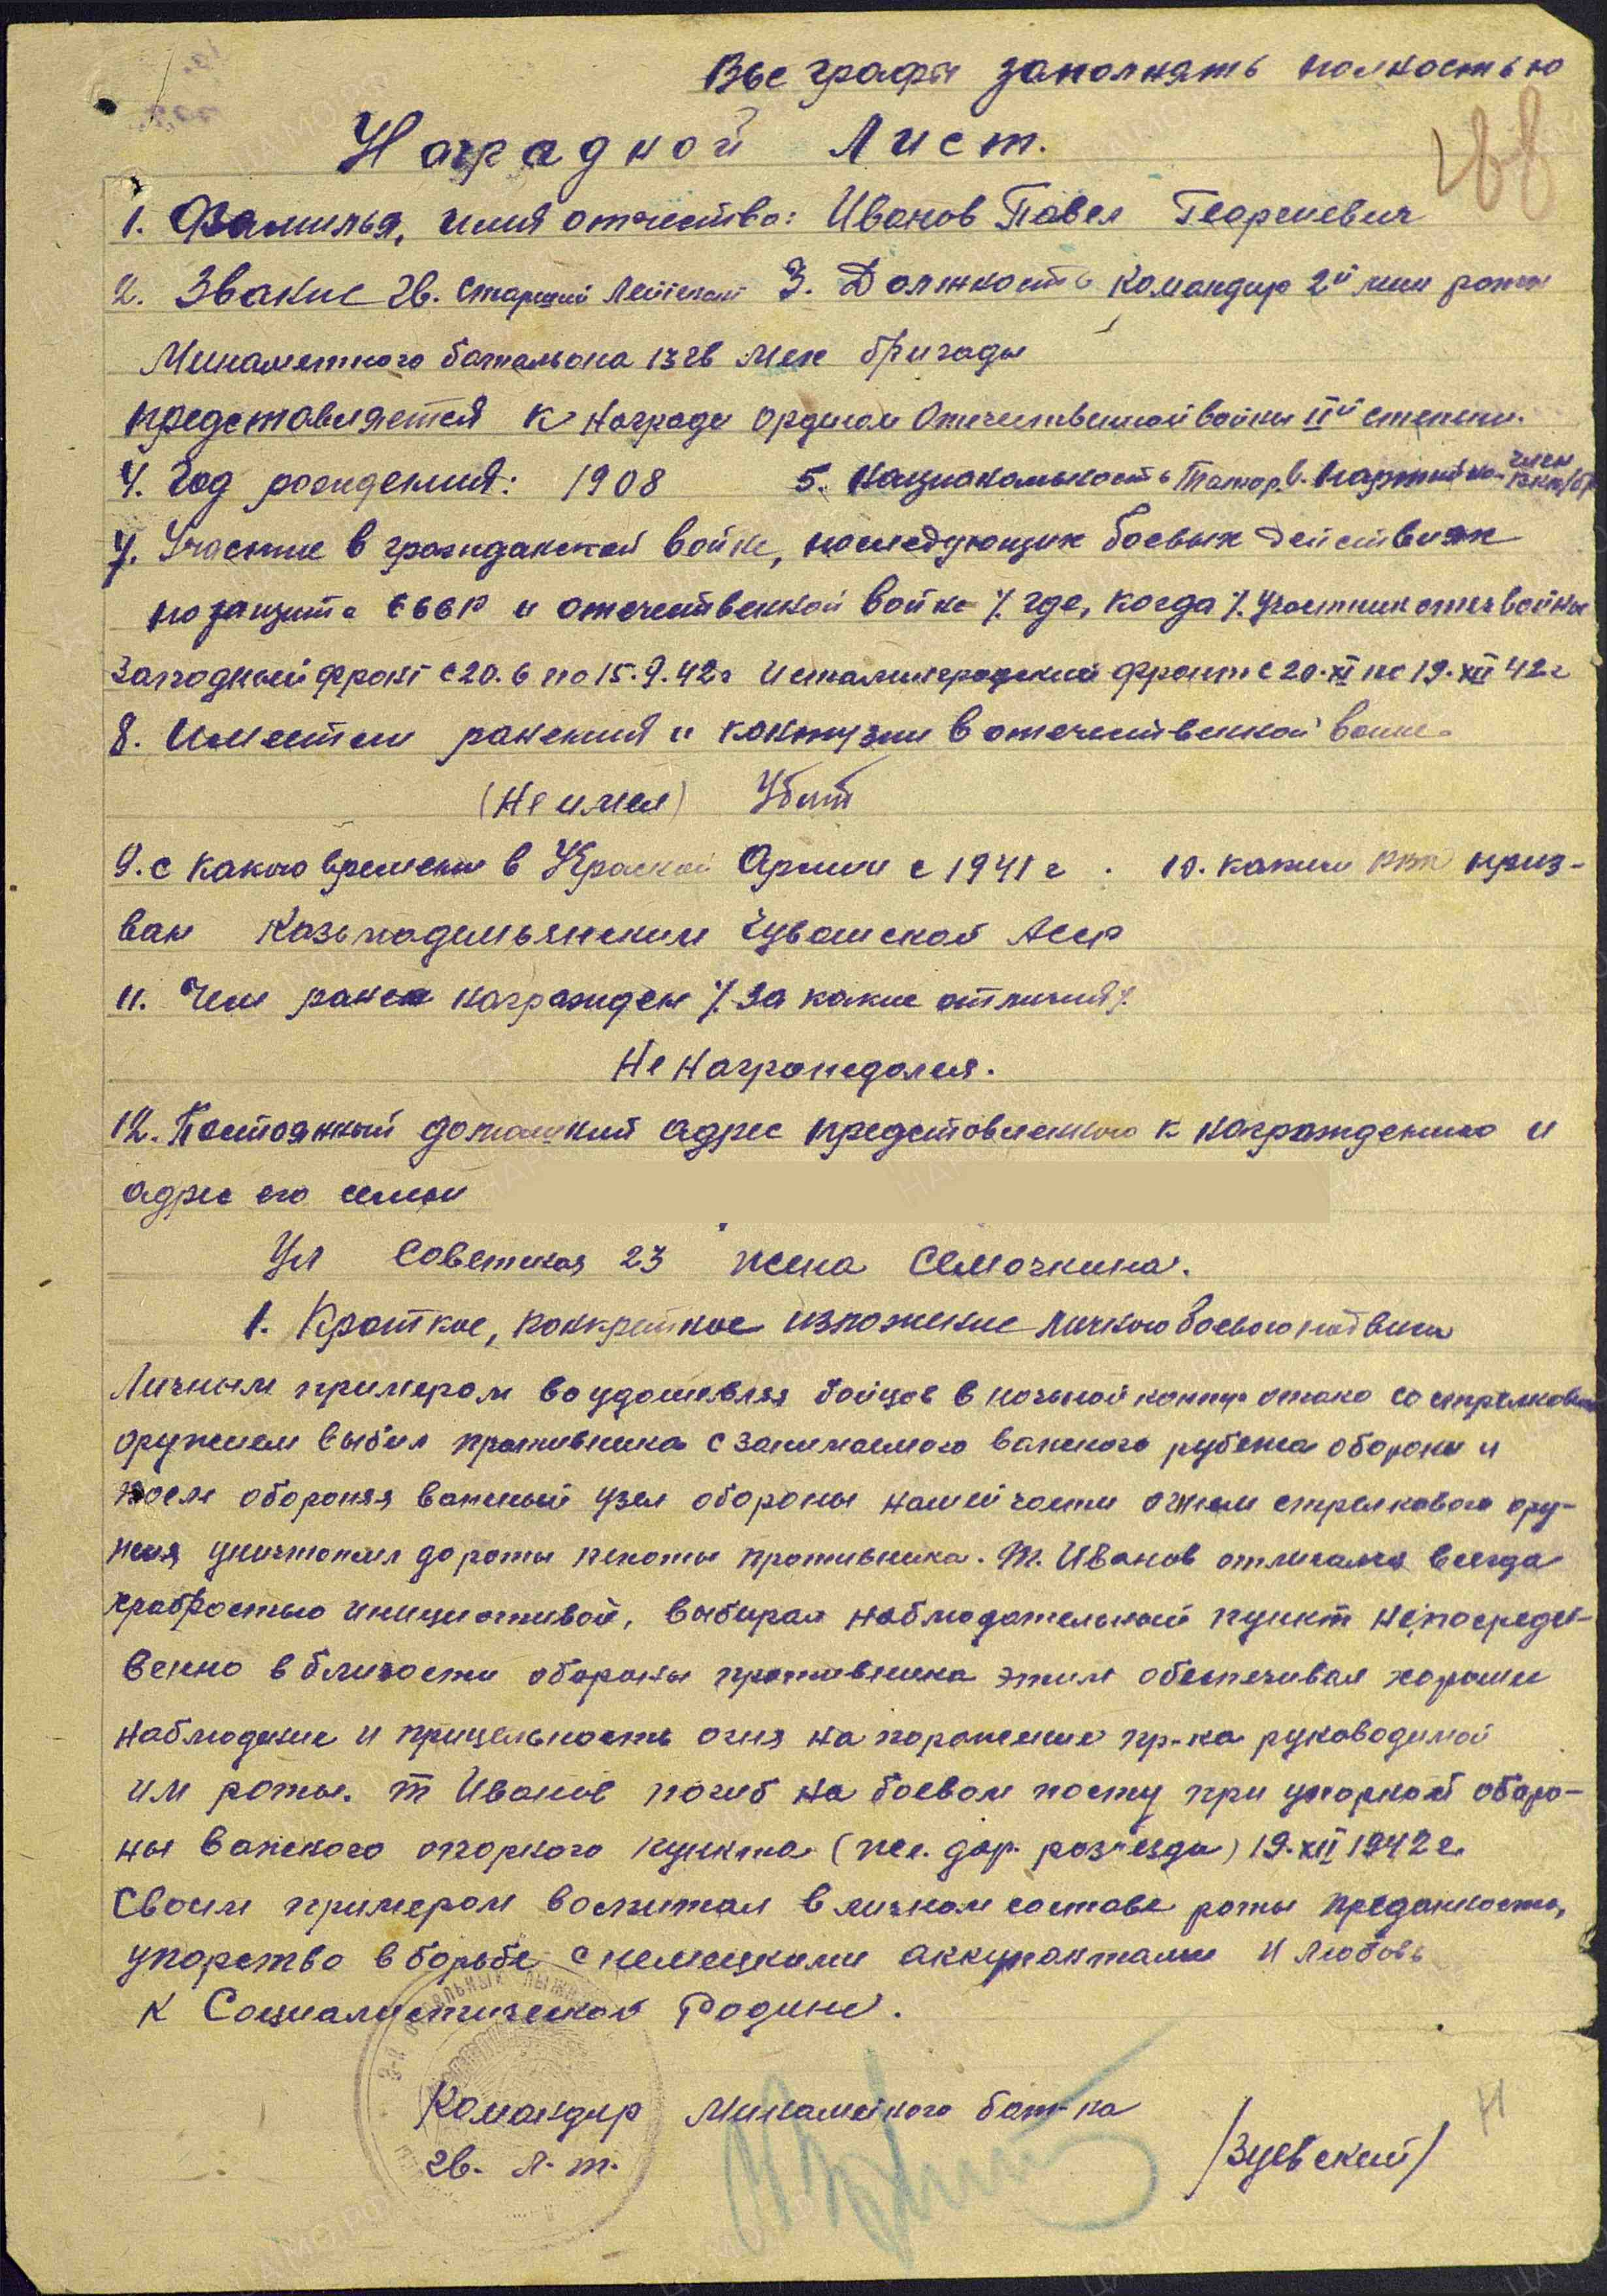 Все графы заполнять полностью
188
Наградной Лист.
1. Фамилья, имя отчество: Иванов Павел Георгиевич
2. Звание гв. старший лейтенант 3. Должность командир 2й мин роты
Минаметного батальона 13 гв мех бригады
представляется к награде орденом Отечественной войны IIй степени.
4. Год рождения: 1908 5. Национальность Татар. 6. Партийно- член
7. Участие в гражданской войне, последующих боевых действиях
по защите СССР и отечественной войне /. где, когда /. участник отеч войны
Западный фронт с 20.6 по 15.9.42г Исталинградский фронт с 20.XI по 19.XII 42г
8. Имеет ли ранения и контузии в отечественной войне.
(Не имел) Убит
9. с какого времени в Красной Армии с 1941 г. 10. каким РВК приз-
ван Казьмодемьянским Чувашской Асср
11. Чем ранее награжден /. За какие отличия /.
Не награждался.
12. Постоянный домашний адрес представленного к награждению и
адрес его семьи
Ул Советская 23 жена Семочкина.
1. Краткое, конкретное изложение личного боевого подвига
Личным примером воодушевляя бойцов в ночной контр атаке со стрелковым
оружием выбил противника с занимаемого важного рубежа обороны и
после обороняя важный узел обороны нашей части огнем стрелкового ору-
жия уничтожил до роты пехоты противника. Т. Иванов отличался всегда
храбростью инициативой, выбирал наблюдательный пункт непосредст-
венно в близости обороны противника этим обеспечивал хорошие
наблюдение и прицельность огня на поражение пр-ка руководимой
им роты. т Иванов погиб на боевом посту при упорной оборо-
ны важного опорного пункта (жел. дор. разъезда) 19.XII 1942 г.
Своим примером воспитал в личном составе роты преданность,
упорство в борьбе с немецкими аккупантами и любовь
к Социалистической Родине.
Командир Минаметного бат-на
гв. п-п. /Зуевский/